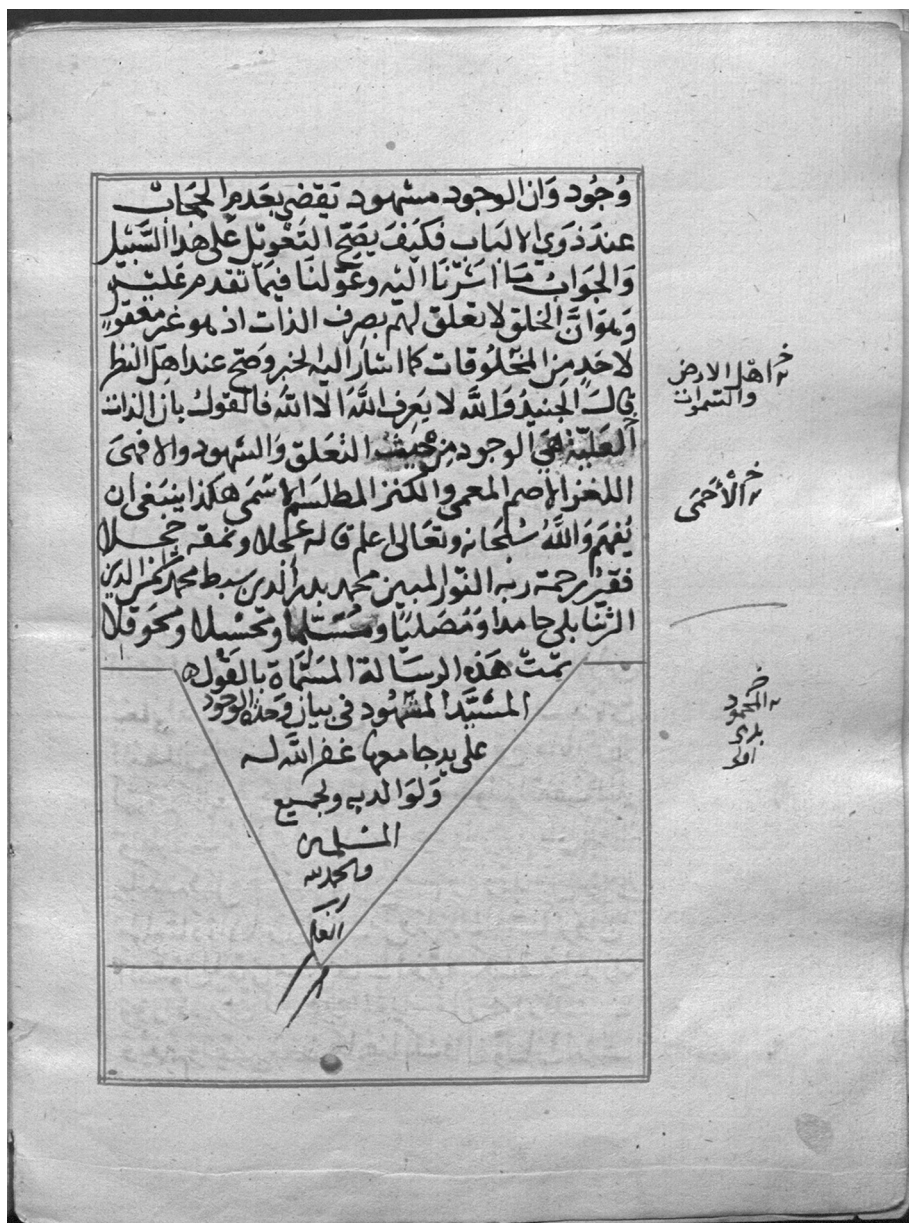 وُجُود وَان الوجود مشهود يَقضي بعَدم الجهات
عندَ ذوي الالباب فكيفَ يصَحّ التَعْويل عَلى هذا السَّبيْل
وَالجَوابُ مَا اشرْنا اليْه وعَوّلنا فيمَا تقدم عَليْه
وَهوَانَّ الخلق لا تعلق لهم بصرف الذات اذ هو غير معقول
لاحَدٍ مِن المخلوقات كما اشار اليه الخبر وَصَحّ عند اهل النظر
قال الجنيد وَالله لا يعَرف اللهَ الا الله فالقول بان الذات
العَليّة هي الوجود مِن حيث التعَلق وَالشهود والا فهىَ
اللغز الاصم المعمى والكنز المطلسَم الاسْمى هكذا ينبَغى ان
يُفهَم وَاللهُ سُبْحَانه وتعَالى اعلم قاله عَجلا ونمقه خجلا
فقيرُ رحمة ربه النور المبين محمد بدر الدين سبط محمد شمس الدين
الرُّنبابلي حامدا وَمُصَليًا ومُسَلّما ومحسْبلا ومحَوقلا
تمتْ هَذه الرسَالة المسَمّاة بالقَوْل
المشيَّد المشهُود في بيان وَحدة الوجود
على يد جامعها غفر اللهَ له
وَلوَالديه ولجميع
المسْلمين
والحمد لله
رب
العا
خ اهل الارض
والسَّموات
خ الأحمَى
خ المحمود